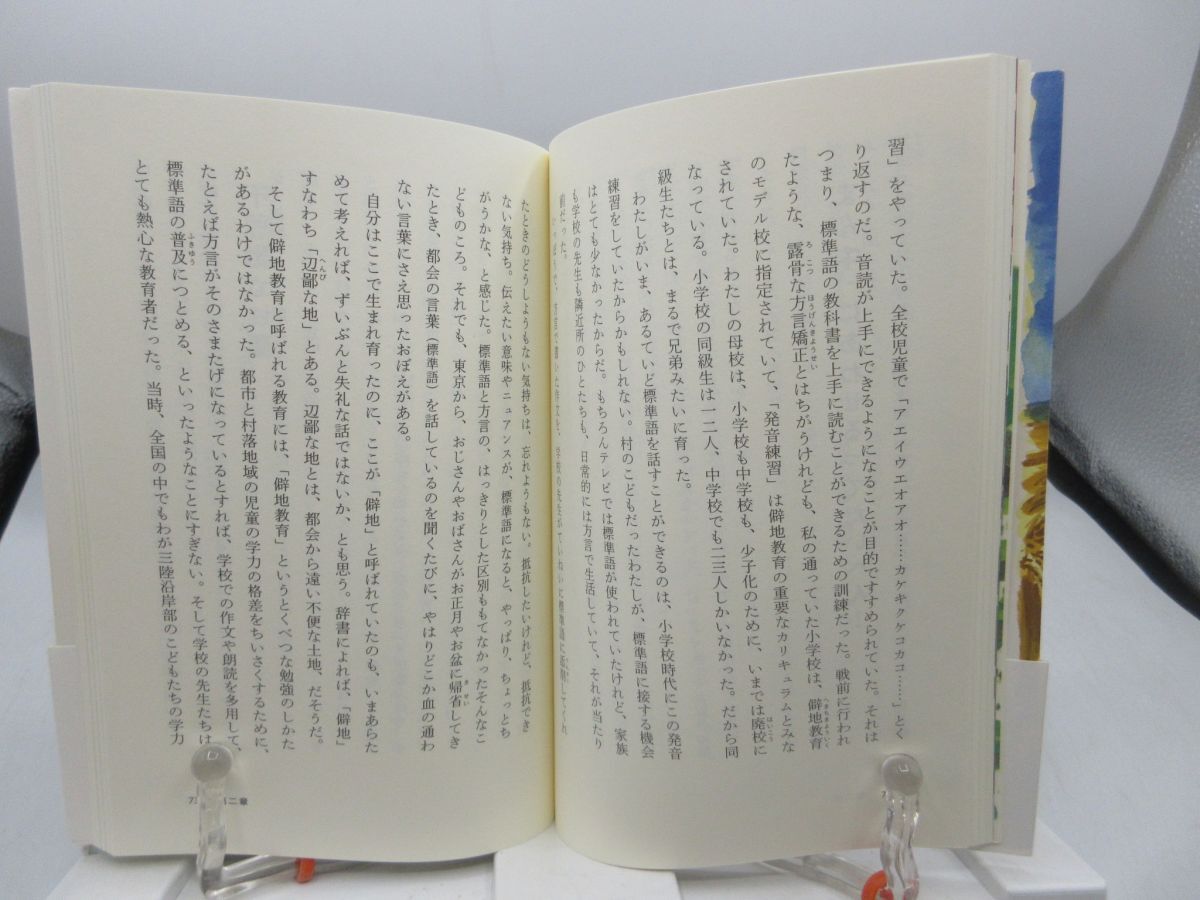 習」をやっていた。全校児童で「アエイウエオアオ……カケキクケコカコ……」とく
り返すのだ。音読が上手にできるようになることが目的ですすめられていた。それは
つまり、標準語の教科書を上手に読むことができるための訓練だった。戦前に行われ
たような、露骨な方言矯正とはちがうけれども、私の通っていた小学校は、僻地教育
のモデル校に指定されていて、「発音練習」は僻地教育の重要なカリキュラムとみな
されていた。わたしの母校は、小学校も中学校も、少子化のために、いまでは廃校に
なっている。小学校の同級生は一二人、中学校でも二三人しかいなかった。だから同
級生たちとは、まるで兄弟みたいに育った。
わたしがいま、あるていど標準語を話すことができるのは、小学校時代にこの発音
練習をしていたからかもしれない。村のこどもだったわたしが、標準語に接する機会
はとても少なかったからだ。もちろんテレビでは標準語が使われていたけれど、家族
も学校の先生も隣近所のひとたちも、日常的には方言で生活していて、それが当たり
だった。
たときのどうしようもない気持ちは、忘れようもない。抵抗したいけれど、抵抗でき
ない気持ち。伝えたい意味やニュアンスが、標準語になると、やっぱり、ちょっとち
がうかな、と感じた。標準語と方言の、はっきりとした区別ももてなかったそんなこ
どものころ。それでも、東京から、おじさんやおばさんがお正月やお盆に帰省してき
たとき、都会の言葉(標準語)を話しているのを聞くたびに、やはりどこか血の通わ
ない言葉にさえ思ったおぼえがある。
自分はここで生まれ育ったのに、ここが「僻地」と呼ばれていたのも、いまあらた
めて考えれば、ずいぶんと失礼な話ではないか、とも思う。辞書によれば、「僻地」
すなわち「辺鄙な地」とある。辺鄙な地とは、都会から遠い不便な土地、だそうだ。
そして僻地教育と呼ばれる教育には、「僻地教育」というとくべつな勉強のしかた
があるわけではなかった。都市と村落地域の児童の学力の格差をちいさくするために、
たとえば方言がそのさまたげになっているとすれば、学校での作文や朗読を多用して、
標準語の普及につとめる、といったようなことにすぎない。そして学校の先生たちは
とても熱心な教育者だった。当時、全国の中でもわが三陸沿岸部のこどもたちの学力
二章